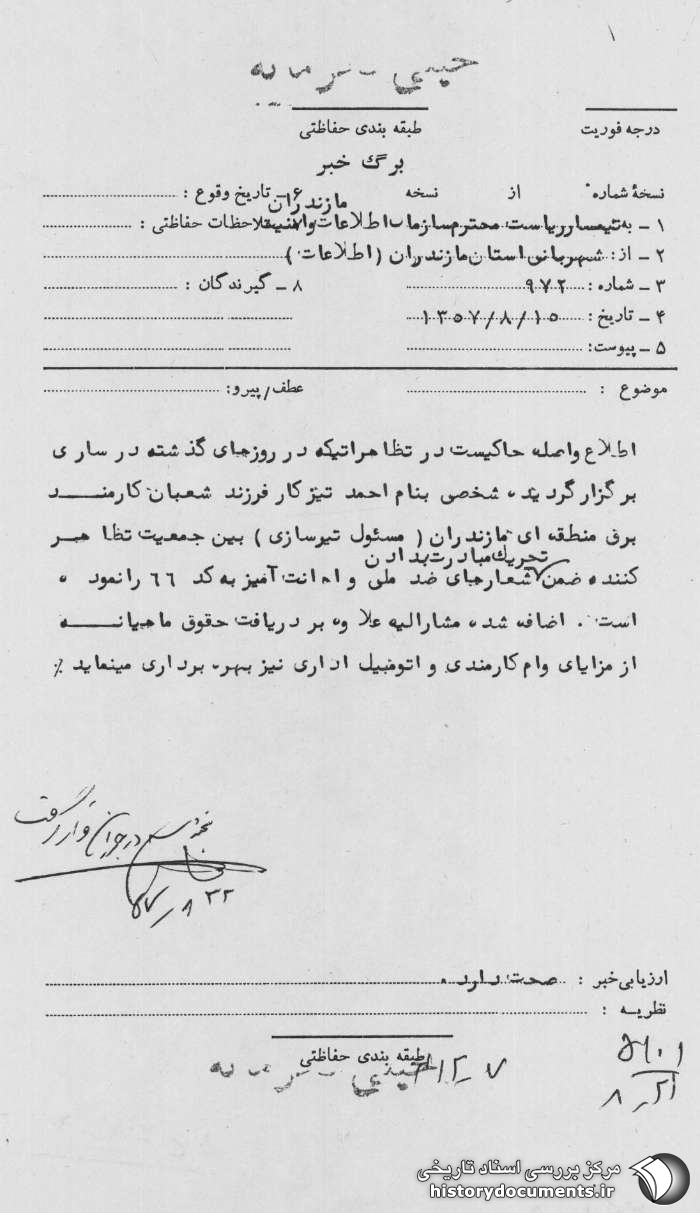 خیلی محرمانه
درجه فوریت
طبقه بندی حفاظتی
برگ خبر
نسخهٔ شماره از نسخه ۶ ـ تاریخ وقوع :
مازندران
۱ ـ به تیمسار ریاست محترم سازمان اطلاعات و امنیت ملاحظات حفاظتی :
۲ ـ از : شهربانی استان مازندران (اطلاعات)
۳ ـ شماره : ۹۷۲ ۸ ـ گیرندگان :
۴ ـ تاریخ : ۱۳۵۷/۸/۱۵
۵ ـ پیوست:
موضوع : عطف/پیرو:
اطلاع واصله حاکیست در تظاهراتیکه در روزهای گذشته در ساری
برگزار گردیده شخصی بنام احمد تیزکار فرزند شعبان کارمند
برق منطقه ای مازندران ( مسئول تیرسازی ) بین جمعیت تظاهر
تحریک مبادرت بدادن
کننده ضمن شعارهای ضد ملی و اهانت آمیز به کد ۶۶ را نموده
است . اضافه شده مشارالیه علاوه بر دریافت حقوق ماهیانه
از مزایای وام کارمندی و اتومبیل اداری نیز بهره برداری مینماید ٪
در جریان قرار گرفت
ارزیابی خبر : صحت دارد .
نظریه :
طبقه بندی حفاظتی
خیلی محرمانه
مرکز بررسی اسناد تاریخی
historydocuments.ir